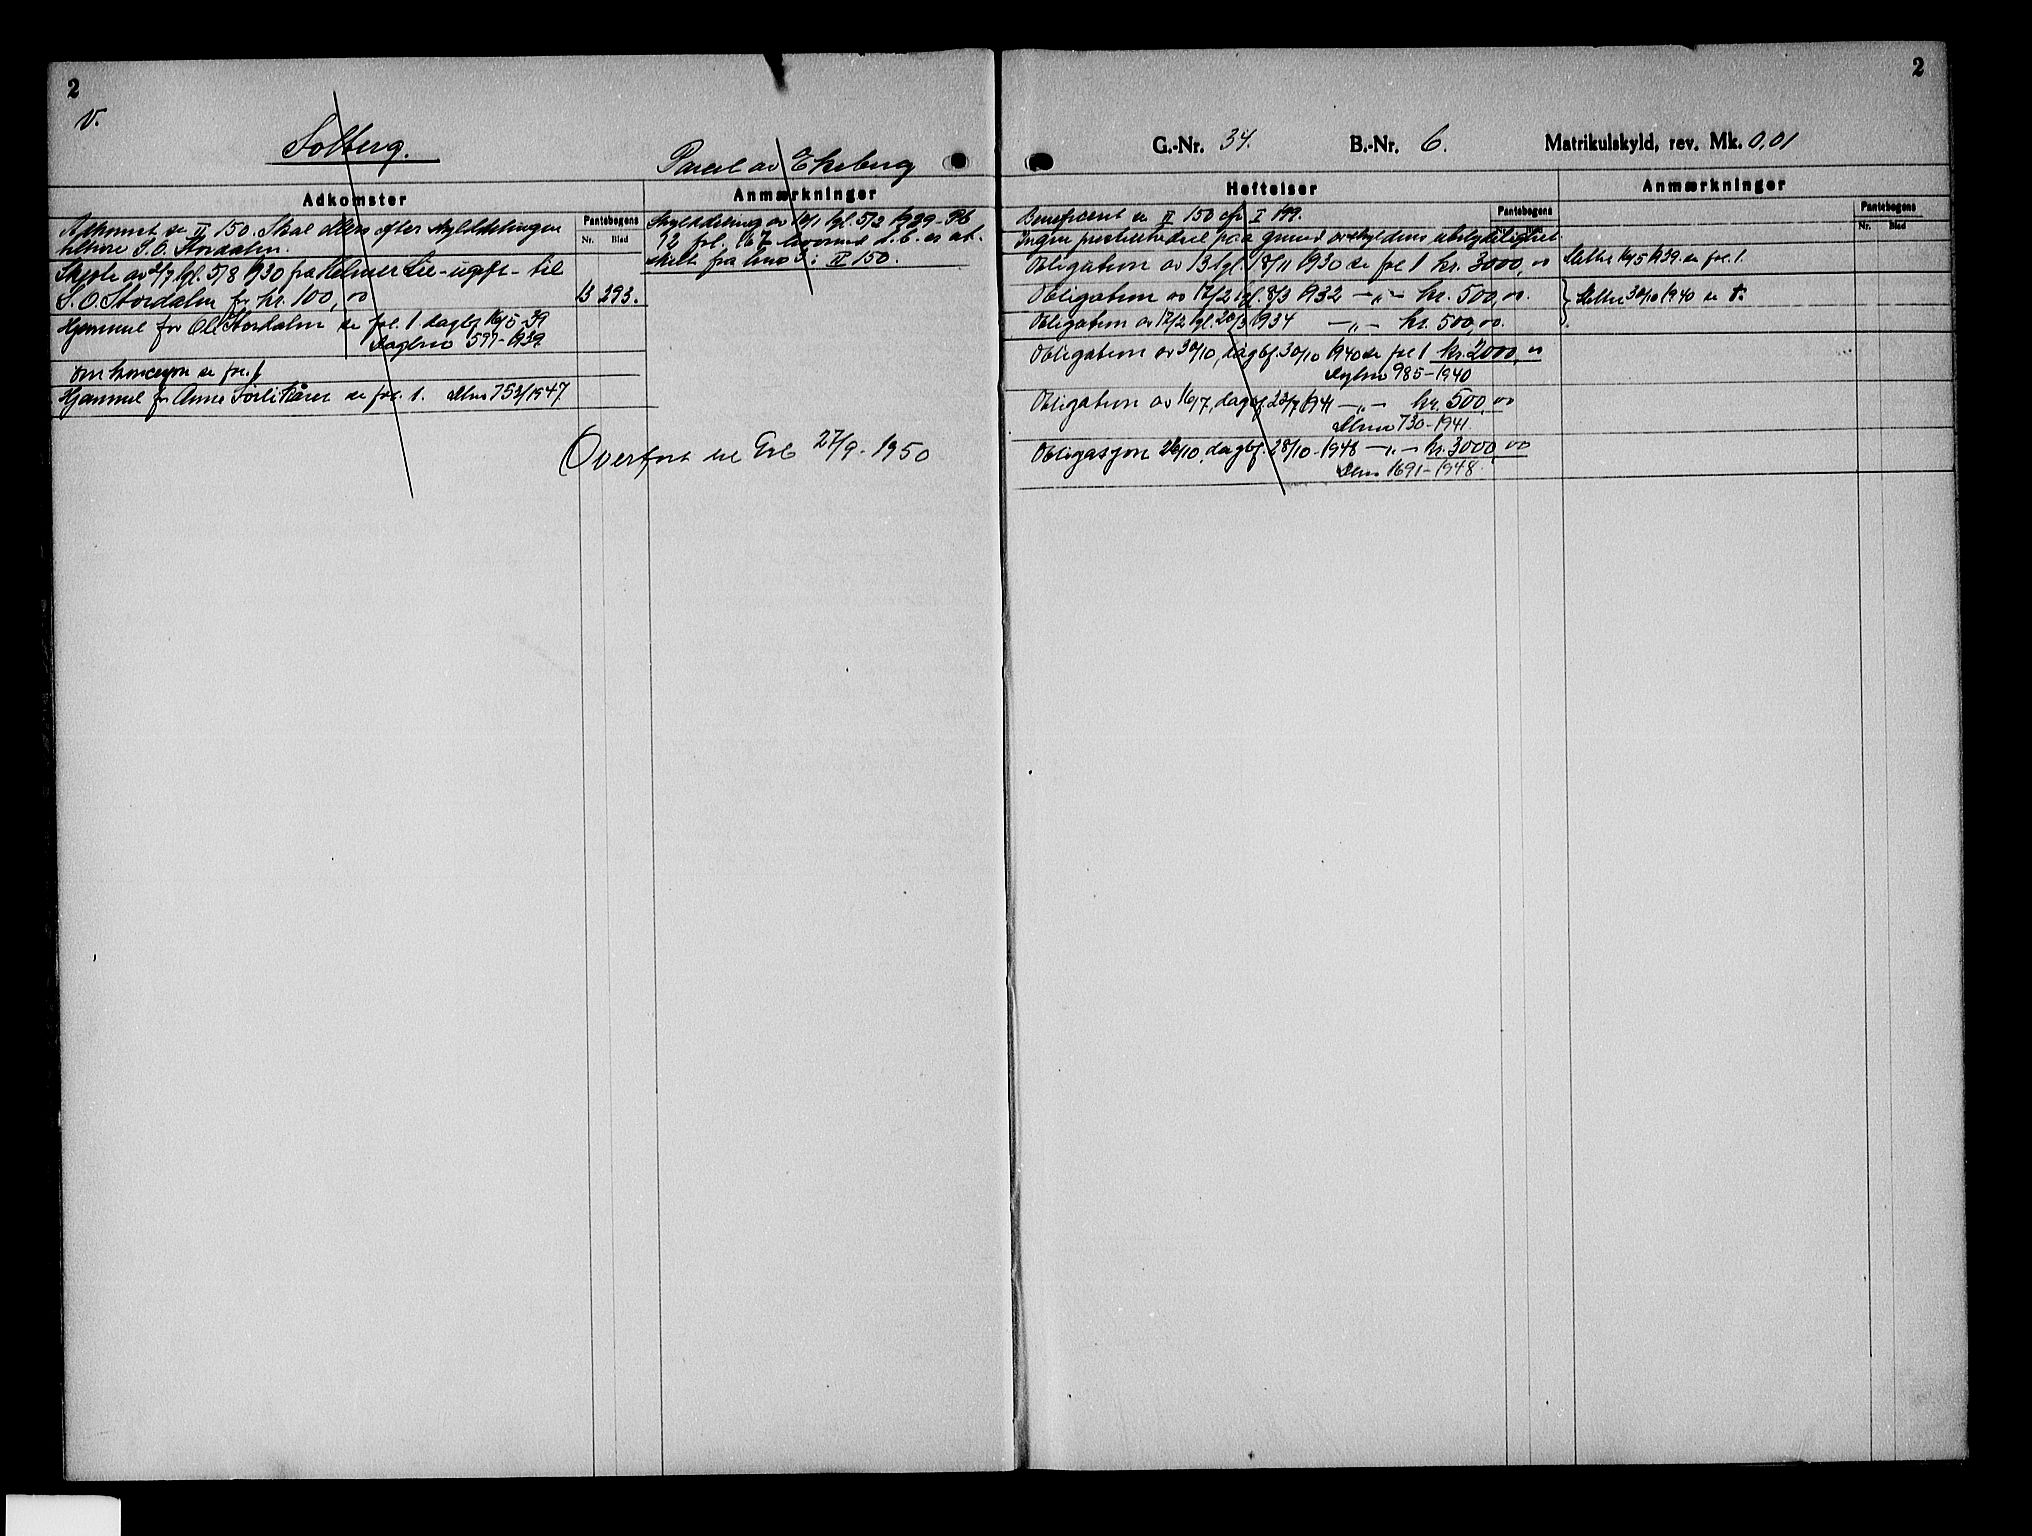 2
V.
Solberg.
Parcel av Ekeberg
Adkomster
Anmærkninger
Pantebogens
Nr. Blad
Adkomst se II 150. Skal ellers efter skylddelingen
tilhøre S. O. Stordalen.
Skjøte av 2/7 tgl. 5/8 1930 fra Helmer Lie - ugift - til
S. O. Stordalen for kr. 100,00
13 293.
Hjemmel for Ol. Stordalen se fol. 1 dagbf 16/5-39
Dagbno 597-1939.
Om koncesjon se fol. 1
Hjemmel for Anne Kåren se fol. 1. Dbno 753/1947
Skylddeling av 10/1 tgl. 5/2 1929 - Pb
12 fol. 167 hvorved d. b. er at-
skilt fra bno 3 i II 150.
Overført til Grb 27/9-1950
2
G.-Nr. 34. B.-Nr. 6. Matrikulskyld, rev. Mk. 0,01
Heftelser
Anmærkninger
Pantebogens
Pantebogens
Nr. Blad
Beneficert se II 150 cfr I 199.
Ingen på grund av skyldens ubetydelighet
Obligation av 13 tgl. 18/11 1930 se fol 1 kr. 3000,00
Slettet 16/5 1939 se fol. 1.
Obligation av 17/2 tgl. 8/3 1932 —„— kr. 500,00.
Slettet 30/10 1940 se 1.
Obligation av 17/2 tgl. 20/3 1934 —„— kr. 500,00.
Obligation av 30/10, dagbf. 30/10 1940 se fol 1 kr. 2000,00
Dagbno 985-1940
Obligation av 16/7, dagbf. 23/7 1941 —„— kr. 500,00
Dbno 730-1941
Obligasjon 26/10, dagbf. 28/10-1948 —„— kr. 3000,00
Dbno 1691-1948